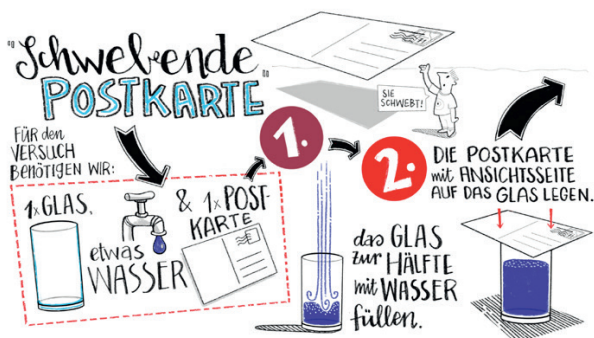 "Schwebende
POSTKARTE"
SIE
SCHWEBT!
FÜR den
VERSUCH
BENÖTIGEN WIR:
1x GLAS,
etwas
WASSER
& 1x POST-
KARTE
1.
das GLAS
zur HÄLFTE
mit WASSER
füllen.
2.
DIE POSTKARTE
mit ANSICHTSSEITE
AUF DAS GLAS LEGEN.